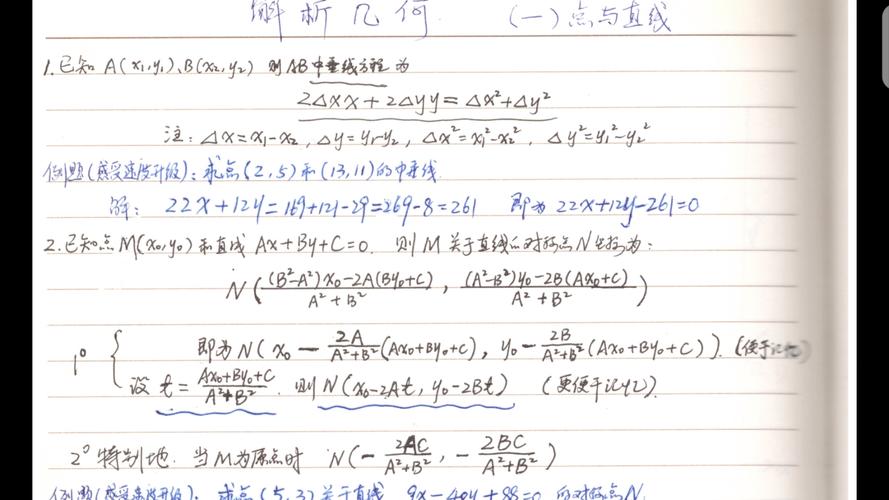 解析几何 (一)点与直线
1.已知 A(x₁,y₁)、B(x₂,y₂) 则AB中垂线方程为
2△x x + 2△y y = △x²+△y²
注: △x = x₁-x₂, △y = y₁-y₂, △x² = x₁²-x₂², △y² = y₁²-y₂²
例题(感受速度升级): 求点(2,5)和(13,11)的中垂线.
解: 22x+12y=169+121-29=269-8=261 即为 22x+12y-261=0
2.已知点M(x₀,y₀)和直线 Ax+By+C=0. 则M关于直线的对称点N坐标为:
N((B²-A²)x₀-2A(By₀+C)/A²+B², (A²-B²)y₀-2B(Ax₀+C)/A²+B²)
1° { 即为N(x₀ - 2A/A²+B² (Ax₀+By₀+C), y₀ - 2B/A²+B² (Ax₀+By₀+C)). (便于记忆)
设 t = Ax₀+By₀+C/A²+B². 则N(x₀-2At, y₀-2Bt) (更便于记忆).
2° 特别地. 当M为原点时 N(- 2AC/A²+B², - 2BC/A²+B²)
例题(感受速度升级): 求点(5,3)关于直线 9x-40y+88=0 的对称点N.